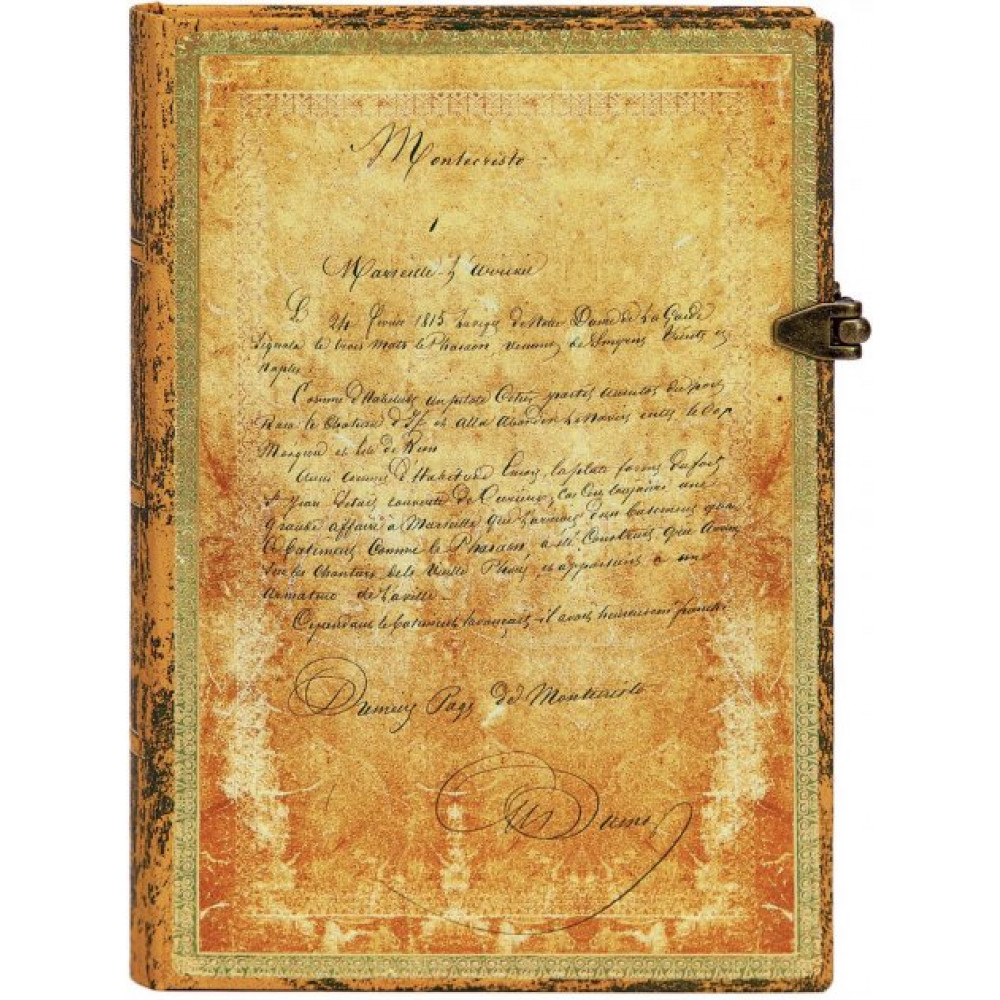 Montecristo
1
Marseille – L'arrivée
Le 24 Février 1815 la vigie de Notre Dame de La Garde
Signala le trois mats le Pharaon, venant de Smyrne Trieste et
Naples.
Comme d'Habitude un pilote Cotier partit aussitot du port
Rasa le Chateau d'If et alla aborder le Navire entre le Cap
Morgion et l'ile de Rion
Aussi comme d'Habitude la plate forme du fort
St Jean s'etait couverte de Curieux; Car c'est toujours une
grande affaire à Marseille que l'arrivée d'un batiment quand
Ce batiment Comme le Pharaon, a été Construit
Sur les Chantiers de la Vieille Phocée, et appartient a un
Armateur de la ville –
Cependant le batiment avançait – il avait heureusement franchi
Premiere Page de Montecristo
Alx Dumas